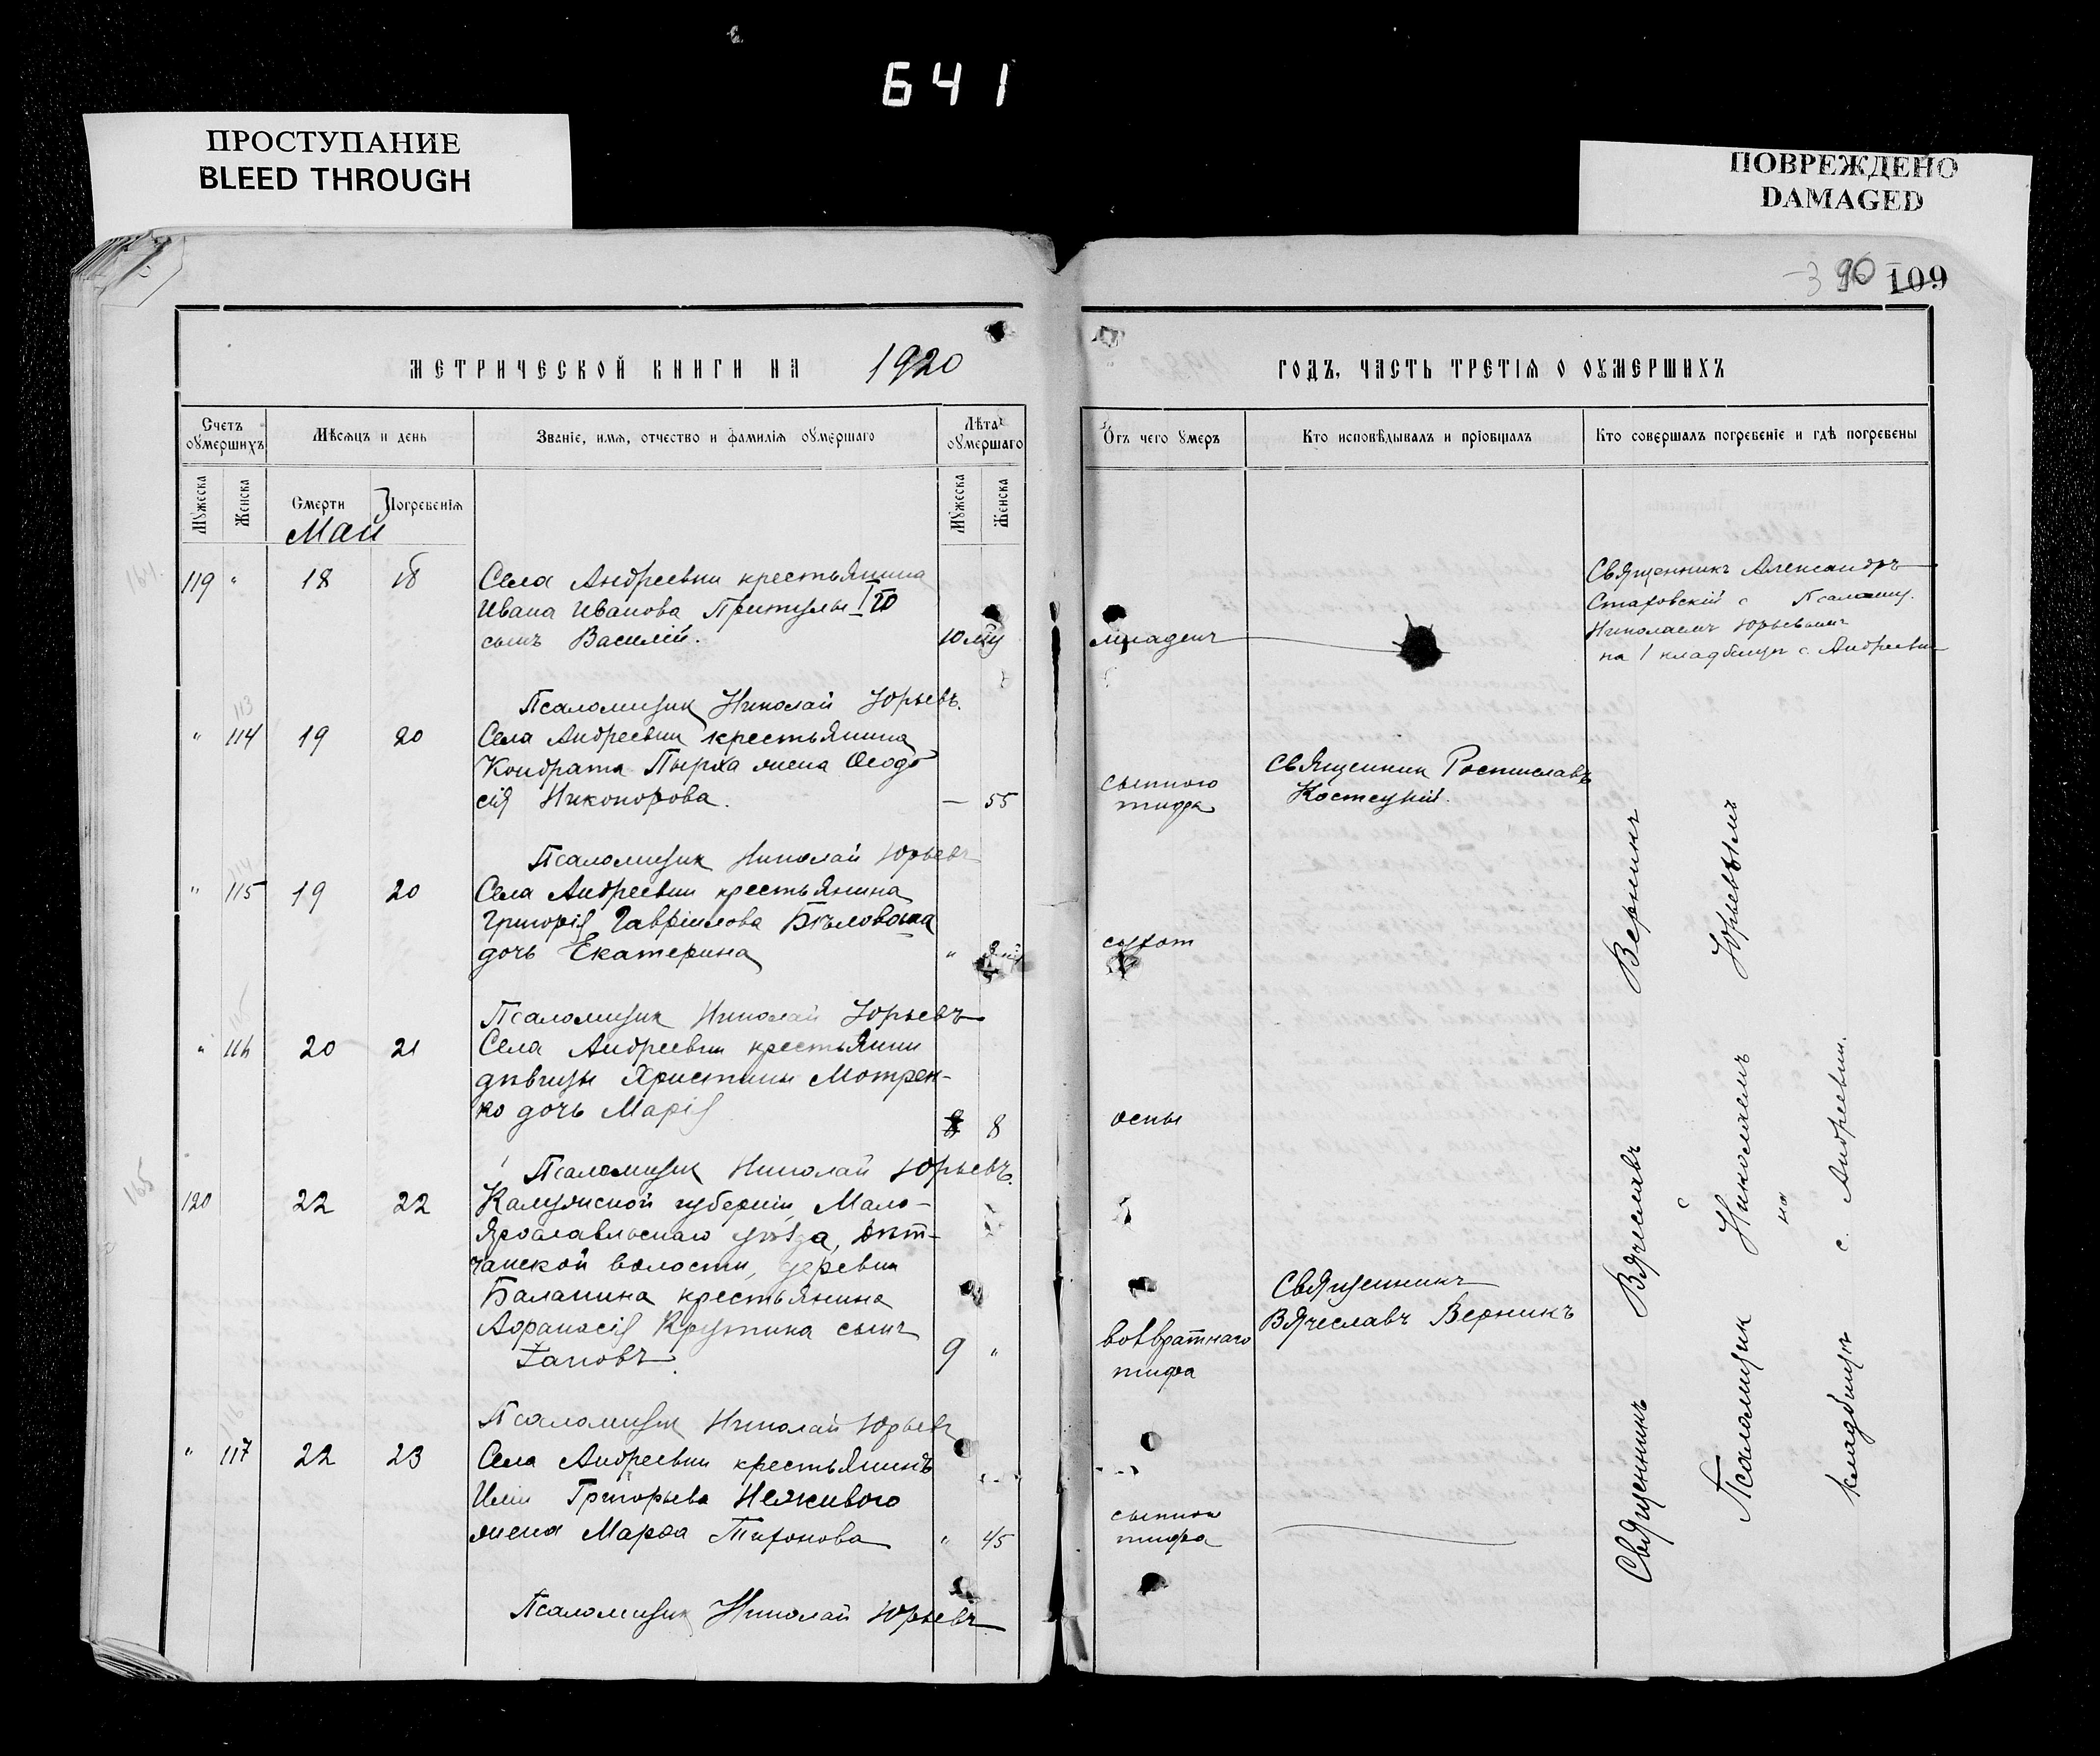 641
ПРОСТУПАНИЕ
BLEED THROUGH
ПОВРЕЖДЕНО
DAMAGED
109
МЕТРИЧЕСКОЙ КНИГИ НА 1920
ГОДЪ, ЧАСТЬ ТРЕТІЯ О ОУМЕРШИХЪ
Счетъ оумершихъ
Мѣсяцъ и день
Званіе, имя, отчество и фамилія оумершаго
Лѣта оумершаго
Отъ чего умеръ
Кто исповѣдывалъ и пріобщалъ
Кто совершалъ погребеніе и гдѣ погребены
Мужеска
Женска
Смерти
Погребенія
Мужеска
Женска
Май
119 " 18 18
Села Андреевки крестьянина
Ивана Иванова Притулы
сынъ Василій.
младенч
Священникъ Александръ
Стаховскій с Псаломщ.
Николаемъ Юрьевымъ
на 1 кладбищѣ с. Андреевки
Псаломщик Николай Юрьевъ.
" 114 19 20
Села Андреевки крестьянина
Кондрата Пырха жена Ѳеодо
сія Никонорова. — 55
сыпного
тифа
Священник Ростиславъ
Костецкій.
Псаломщик Николай Юрьевъ
" 115 19 20
Села Андреевки крестьянина
Григорія Гавріилова Бѣловола
дочь Екатерина "
сухот
Псаломщик Николай Юрьевъ
" 116 20 21
Села Андреевки крестьянки
дѣвицы Христины Мотрен-
ко дочь Марія 8
оспы
Псаломщик Николай Юрьевъ.
120 22 22
Калужской губерніи, Мало-
Ярославльскаго уѣзда,
чанской волости, деревни
Баланина крестьянина
Аѳанасія Крутика сынъ
Іаковъ. 9 "
возвратнаго
тифа
Священникъ
Вячеславъ Верникъ
Псаломщик Николай Юрьевъ
" 117 22 23
Села Андреевки крестьянина
Иліи Григорьева Неживого
жена Марѳа Тихонова " 45
сыпного
тифа
Псаломщик Николай Юрьевъ
Священникъ Вячеславъ Верникъ
с
Псаломщик Николаемъ Юрьевымъ
на
кладбищѣ с. Андреевки.